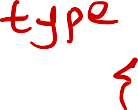 type
{